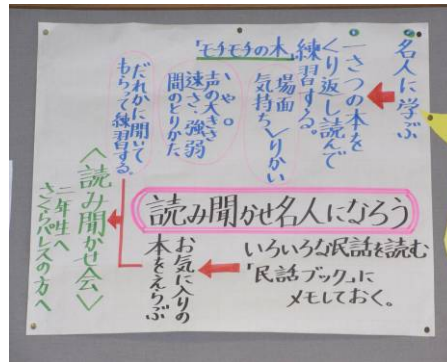 名人に学ぶ
一さつの本を
くり返し読んで
練習する。
「モチモチの木」
場面
気持ち
りかい
いやo
声の大きさ
速さ、強弱
間のとりかた
だれかに聞いて
もらって練習する。
読み聞かせ名人になろう
いろいろな民話を読む
「民話ブック」に
メモしておく。
お気に入りの
本をえらぶ
〈読み聞かせ会〉
二年生へ
さくらパレスの方へ